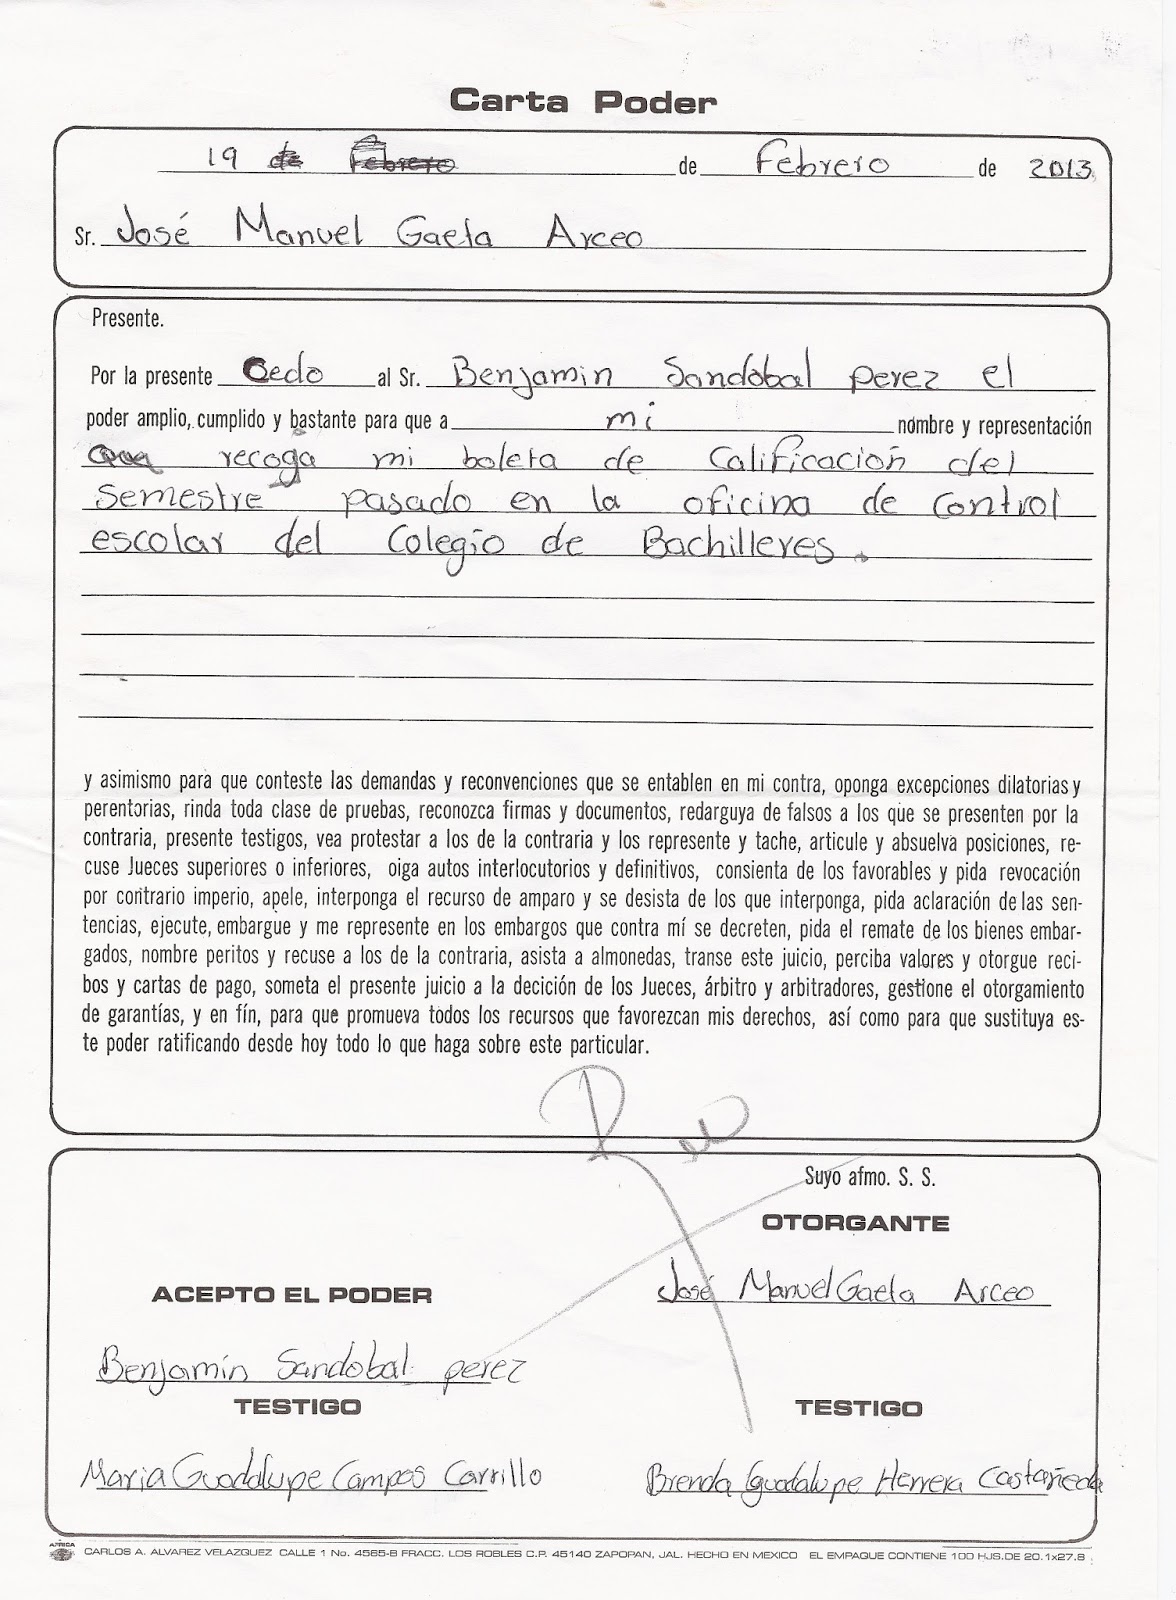 Carta Poder
19 de Febrero de Febrero de 2013
Sr. José Manuel Gaeta Arceo
Presente.
Por la presente Cedo al Sr. Benjamin Sandobal perez el
poder amplio, cumplido y bastante para que a mi nombre y representación
recoga mi boleta de Calificación del
Semestre pasado en la oficina de Control
escolar del Colegio de Bachilleres.
y asimismo para que conteste las demandas y reconvenciones que se entablen en mi contra, oponga excepciones dilatorias y
perentorias, rinda toda clase de pruebas, reconozca firmas y documentos, redarguya de falsos a los que se presenten por la
contraria, presente testigos, vea protestar a los de la contraria y los represente y tache, articule y absuelva posiciones, re-
cuse Jueces superiores o inferiores, oiga autos interlocutorios y definitivos, consienta de los favorables y pida revocación
por contrario imperio, apele, interponga el recurso de amparo y se desista de los que interponga, pida aclaración de las sen-
tencias, ejecute, embargue y me represente en los embargos que contra mí se decreten, pida el remate de los bienes embar-
gados, nombre peritos y recuse a los de la contraria, asista a almonedas, transe este juicio, perciba valores y otorgue reci-
bos y cartas de pago, someta el presente juicio a la decición de los Jueces, árbitro y arbitradores, gestione el otorgamiento
de garantías, y en fín, para que promueva todos los recursos que favorezcan mis derechos, así como para que sustituya es-
te poder ratificando desde hoy todo lo que haga sobre este particular.
Suyo afmo. S. S.
OTORGANTE
José Manuel Gaeta Arceo
ACEPTO EL PODER
Benjamin Sandobal perez
TESTIGO TESTIGO
Maria Guadalupe Campos Carrillo Brenda Guadalupe Herrera Castañeda
AFRICA
CARLOS A. ALVAREZ VELAZQUEZ CALLE 1 No. 4565-B FRACC. LOS ROBLES C.P. 45140 ZAPOPAN, JAL. HECHO EN MEXICO EL EMPAQUE CONTIENE 100 HJS. DE 20.1x27.8